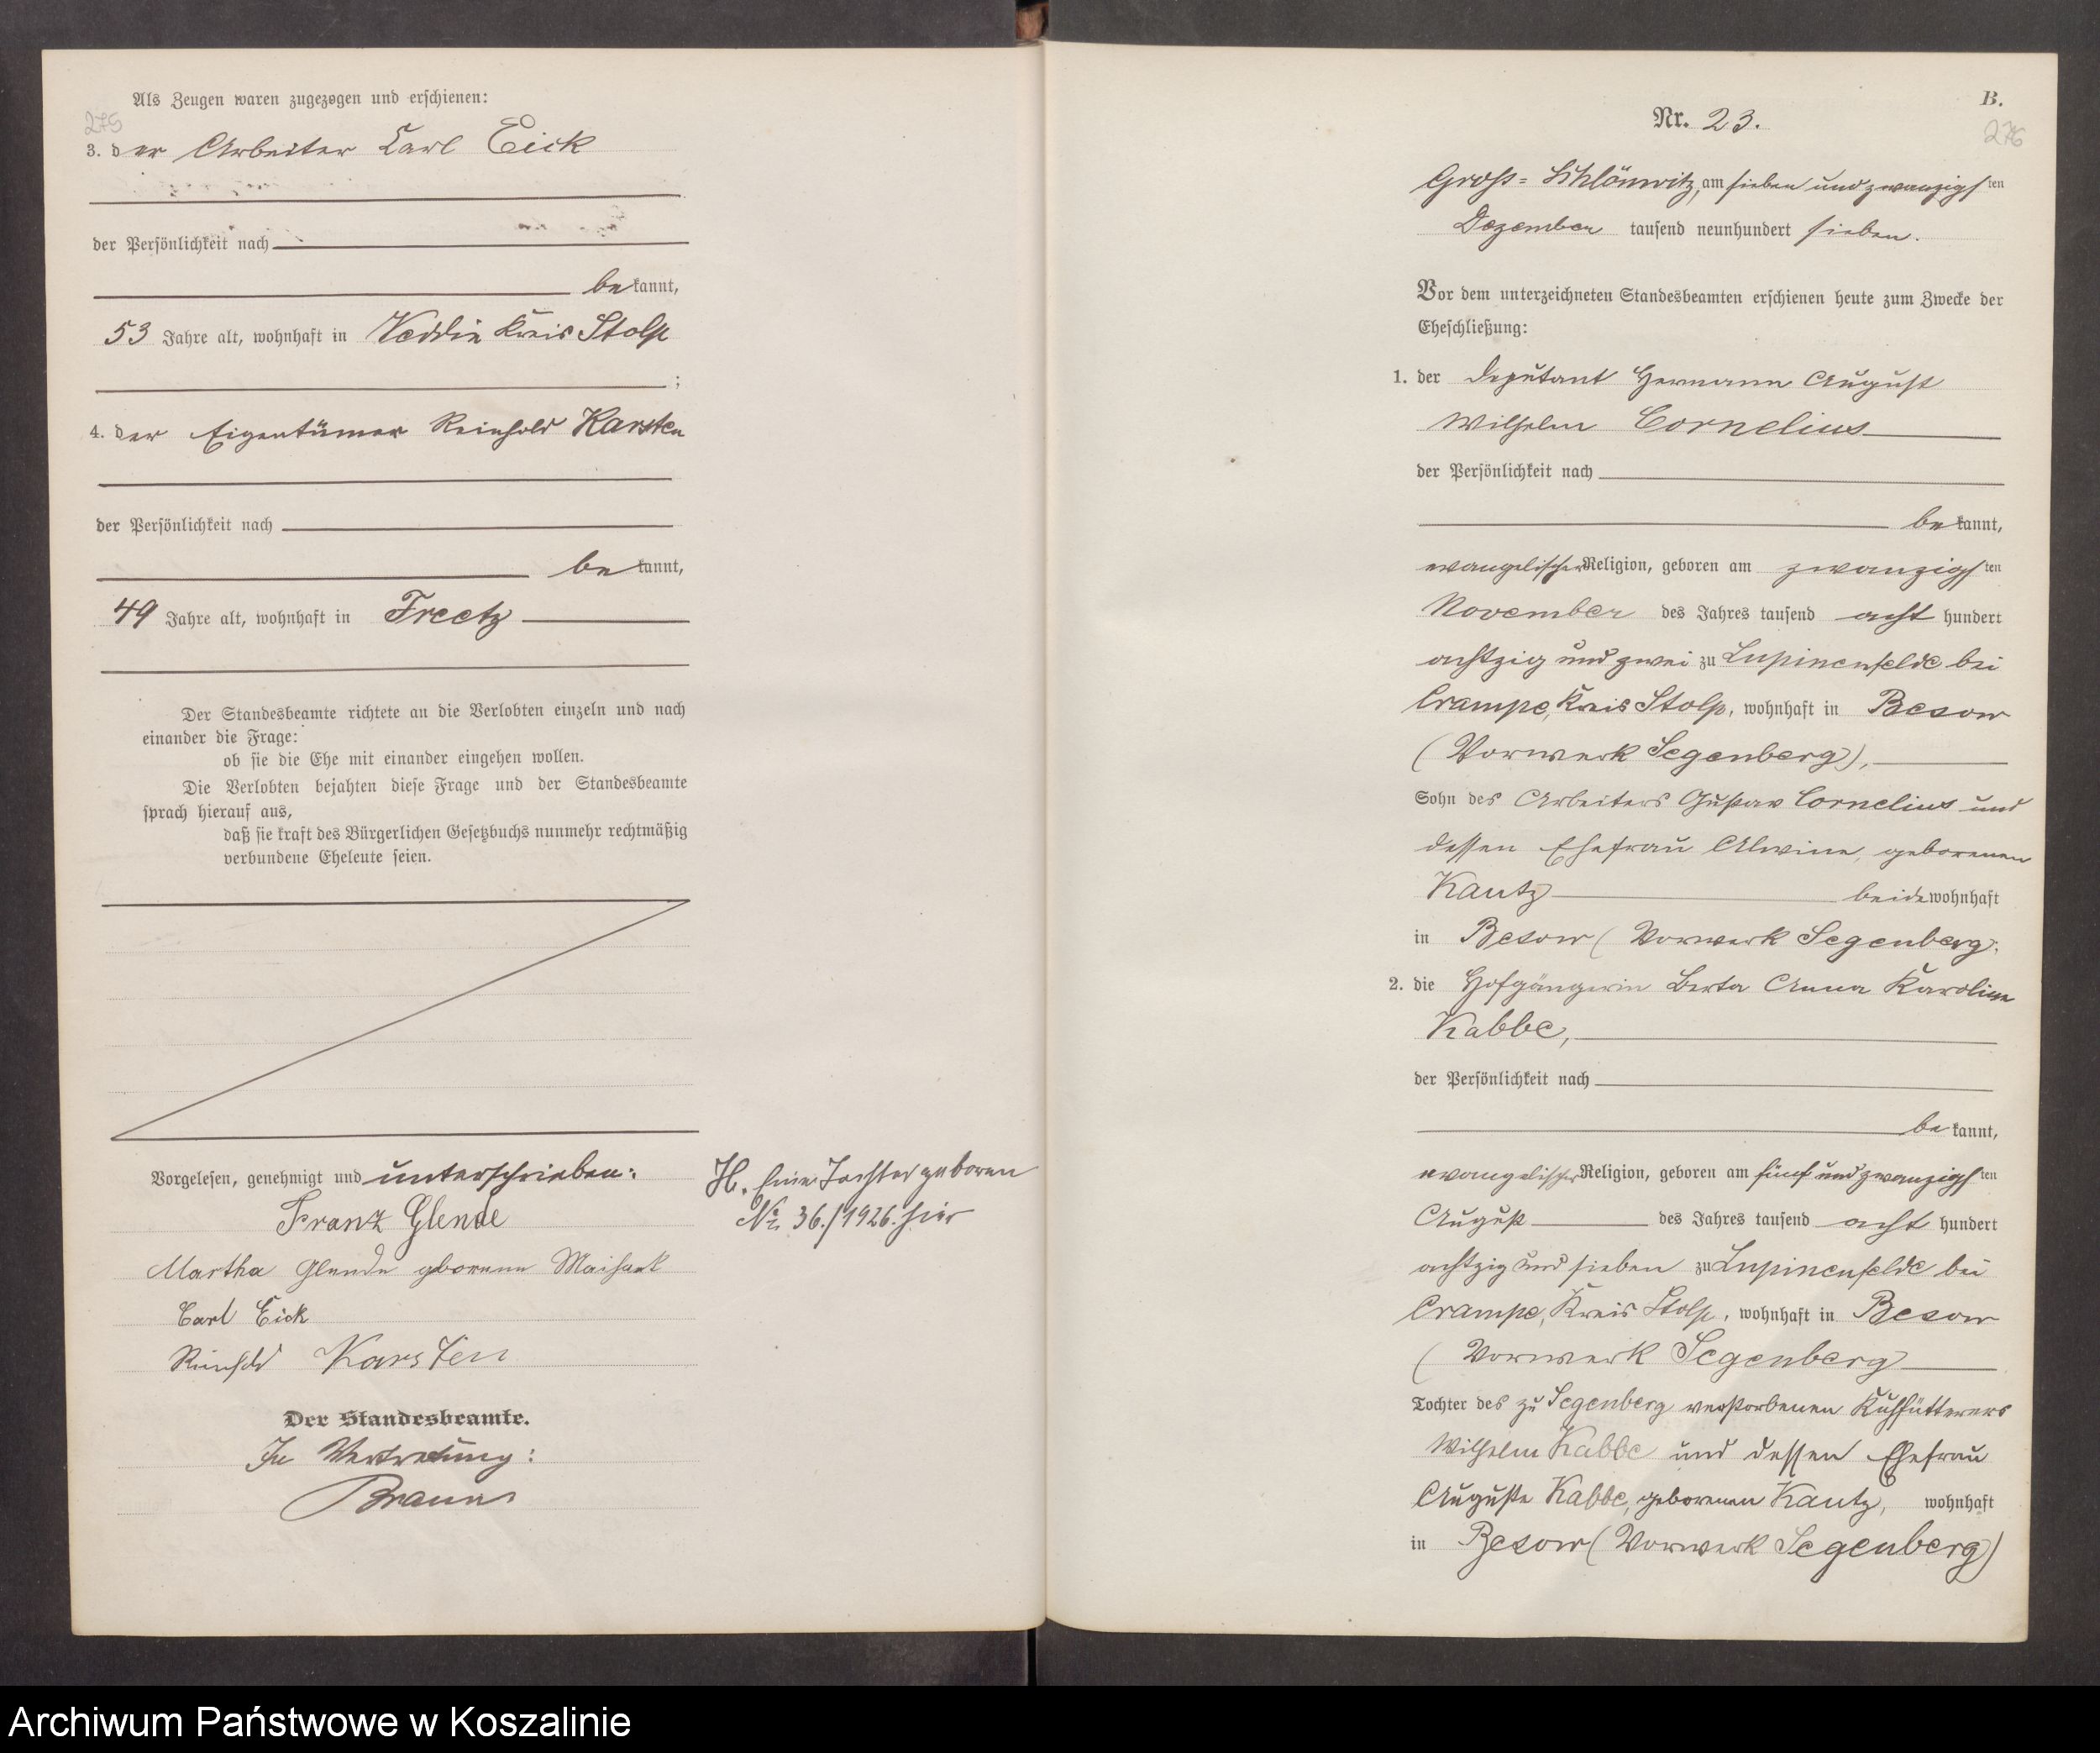 Als Zeugen waren zugezogen und erschienen:
275
3. der Arbeiter Carl Eick
der Persönlichkeit nach
bekannt,
53 Jahre alt, wohnhaft in Veddin Kreis Stolp
;
4. der Eigentümer Reinhold Karsten
der Persönlichkeit nach
bekannt,
49 Jahre alt, wohnhaft in Freetz
Der Standesbeamte richtete an die Verlobten einzeln und nach
einander die Frage:
ob sie die Ehe mit einander eingehen wollen.
Die Verlobten bejahten diese Frage und der Standesbeamte
sprach hierauf aus,
daß sie kraft des Bürgerlichen Gesetzbuchs nunmehr rechtmäßig
verbundene Eheleute seien.
Vorgelesen, genehmigt und unterschrieben:
Franz Glende
Martha Glende geborene
Carl Eick
Reinhold Karsten
Der Standesbeamte.
In Vertretung:
H. Eine Tochter geboren
Nr. 36./1926. hier
B.
Nr. 23.
276
Gross-Schlönwitz, am sieben und zwanzigsten
Dezember tausend neunhundert sieben.
Vor dem unterzeichneten Standesbeamten erschienen heute zum Zwecke der
Eheschließung:
1. der Deputant Hermann August
Wilhelm Cornelius
der Persönlichkeit nach
bekannt,
evangelischer Religion, geboren am zwanzigsten
November des Jahres tausend acht hundert
achtzig und zwei zu Lupinenfelde bei
Crampe, Kreis Stolp, wohnhaft in Besow
(Vorwerk Segenberg),
Sohn des Arbeiters Gustav Cornelius und
dessen Ehefrau Alwine, geborenen
Kautz beide wohnhaft
in Besow (Vorwerk Segenberg).
2. die Hofgängerin Berta Anna Karoline
Kabbe,
der Persönlichkeit nach
bekannt,
evangelischer Religion, geboren am fünf und zwanzigsten
August des Jahres tausend acht hundert
achtzig und sieben zu Lupinenfelde bei
Crampe, Kreis Stolp, wohnhaft in Besow
(Vorwerk Segenberg
Tochter des zu Segenberg verstorbenen Kuhfütterers
Wilhelm Kabbe und dessen Ehefrau
Auguste Kabbe, geborenen Kautz, wohnhaft
in Besow (Vorwerk Segenberg)
Archiwum Państwowe w Koszalinie